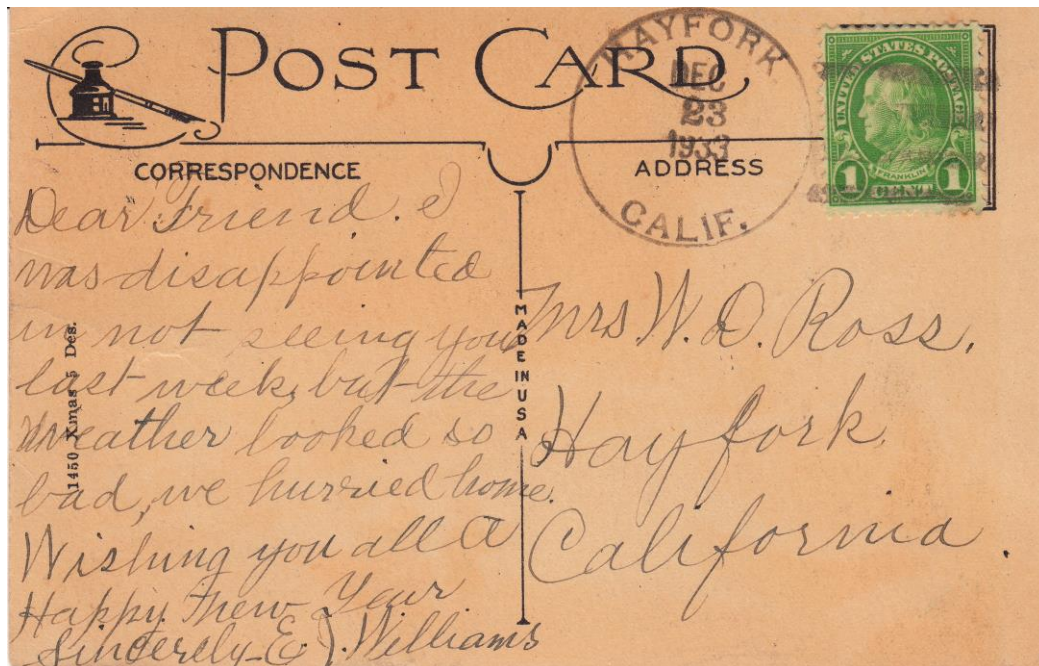 POST CARD
HAYFORK
DEC
23
1933
CALIF.
UNITED STATES POSTAGE
FRANKLIN
1 CENT 1
CORRESPONDENCE
ADDRESS
Dear Friend. I
was disappointed
in not seeing you
last week, but the
weather looked so
bad, we hurried home.
Wishing you all a
Happy New Year
Sincerely E J Williams
1450 Xmas 5 Des.
MADE IN USA
Mrs. W. D. Ross,
Hayfork
California.